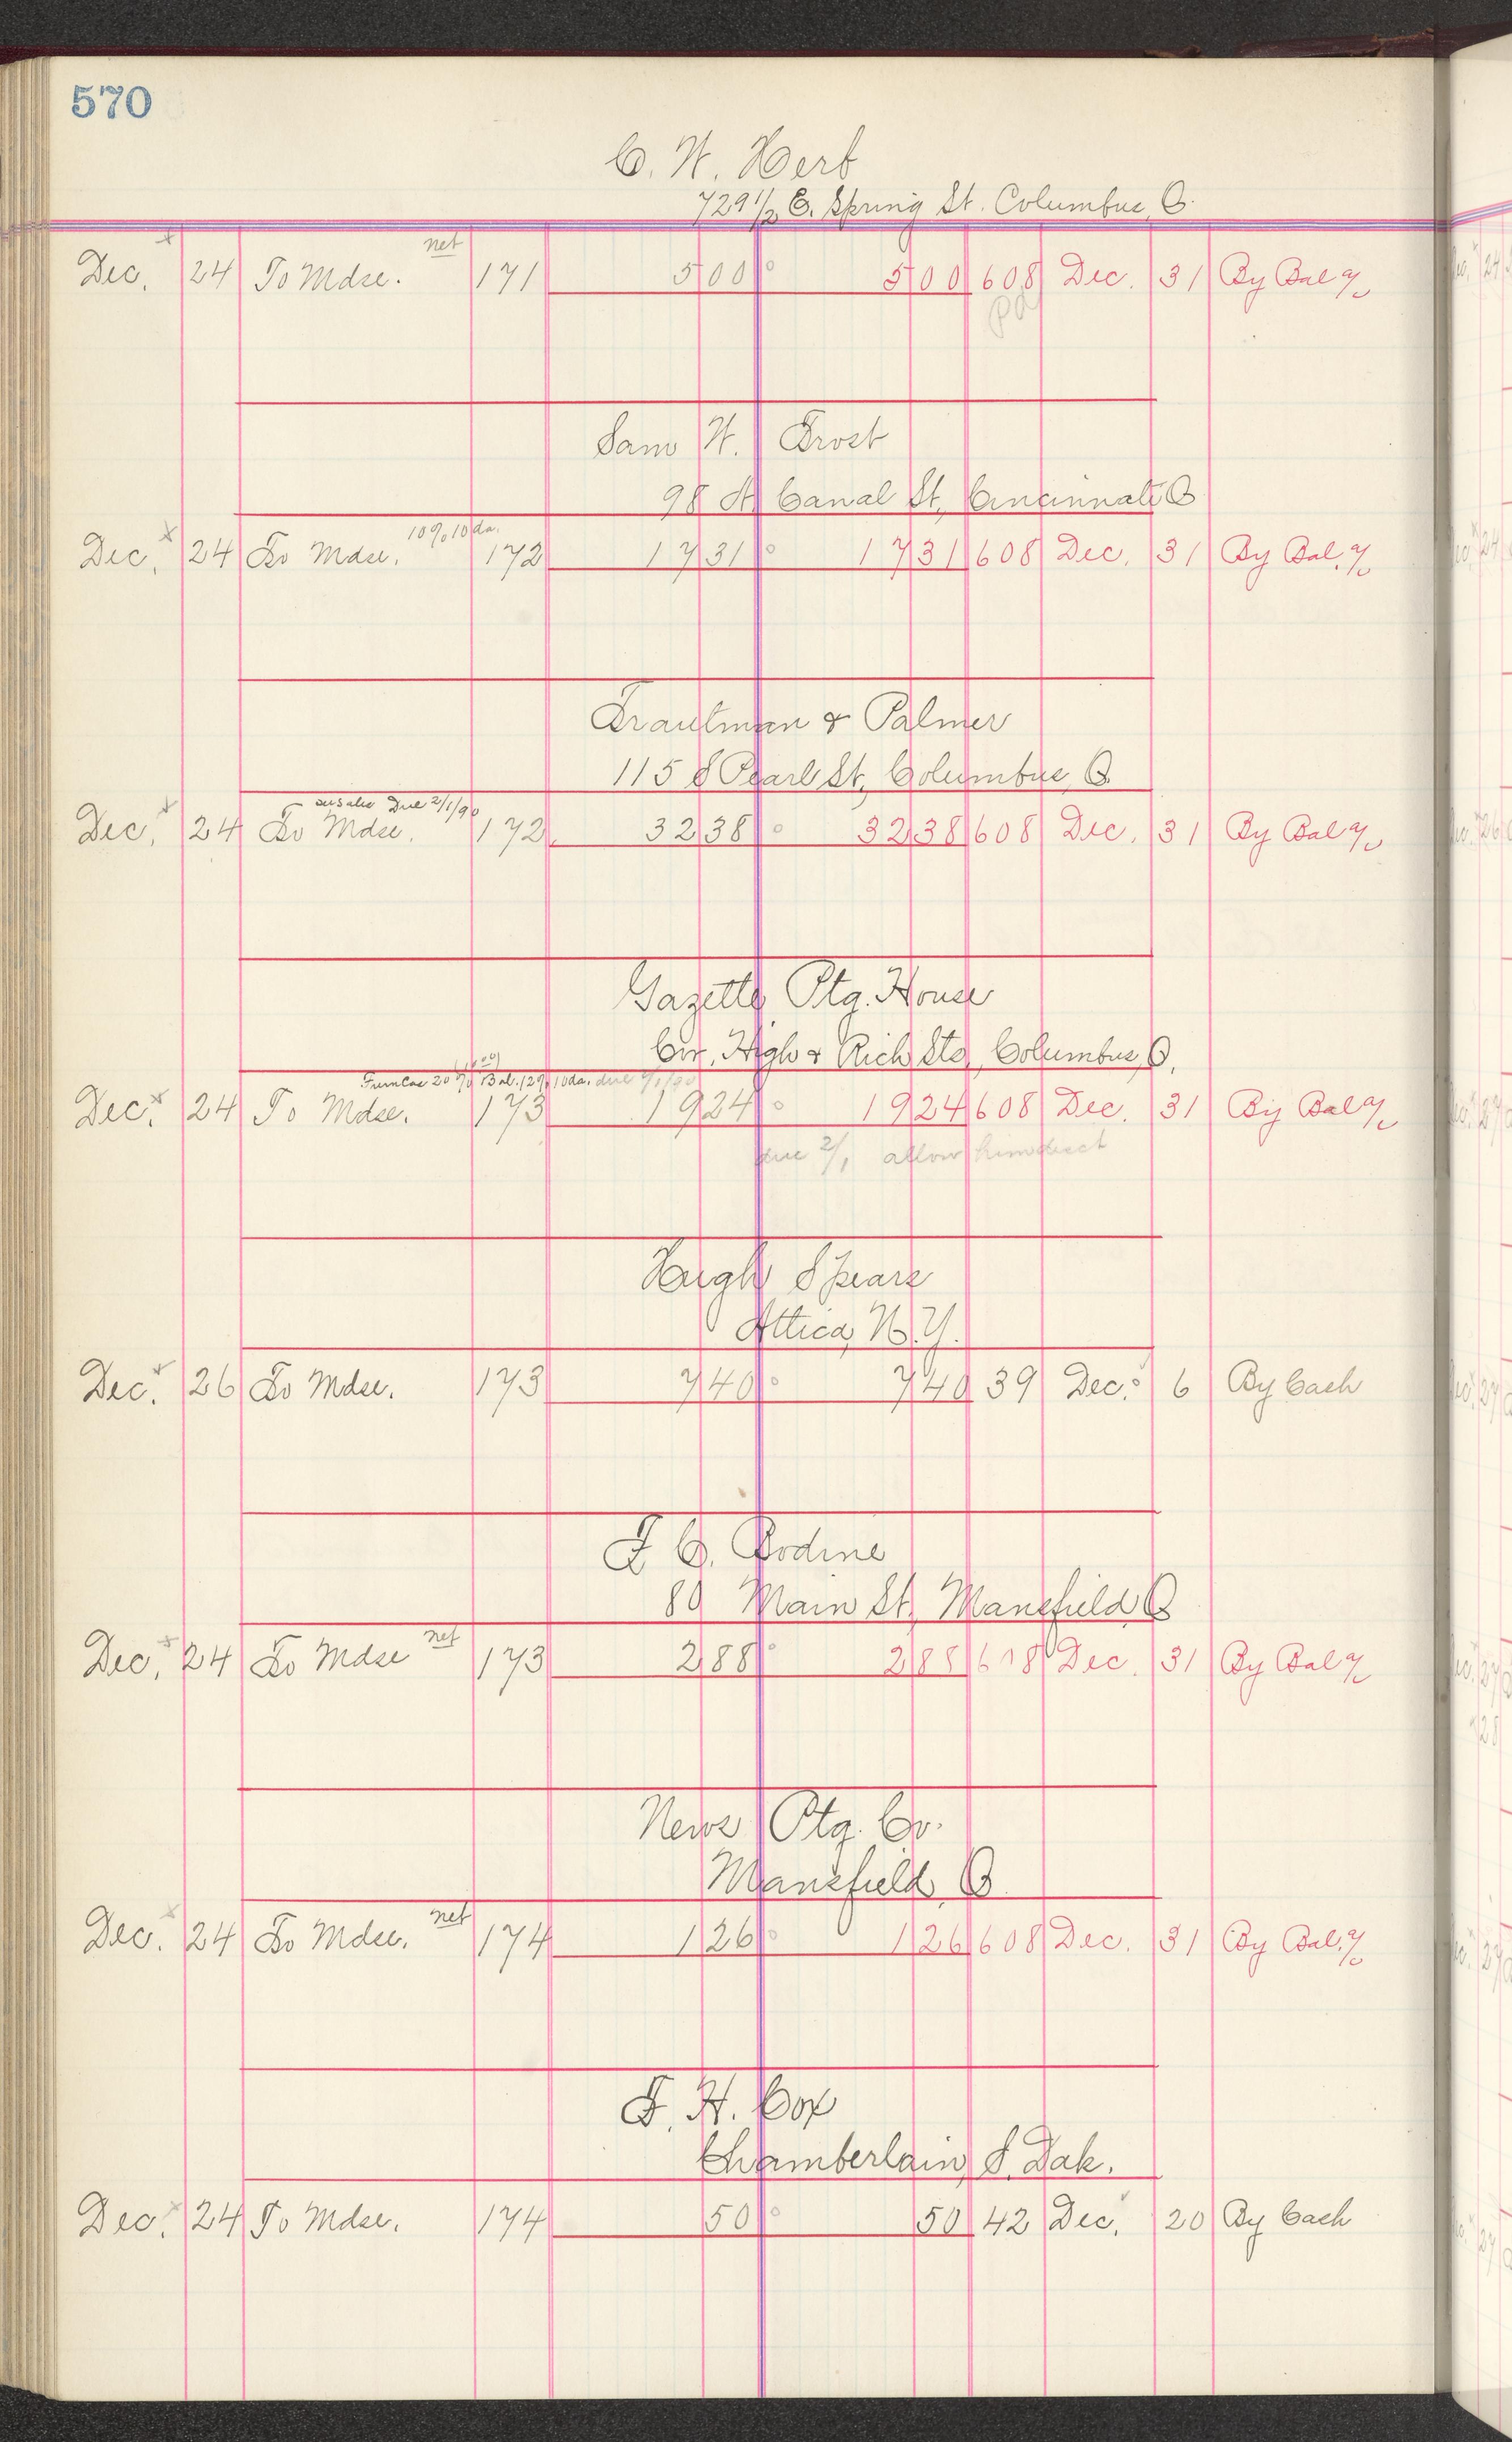 570
C. W. Herb
729 1/2 E. Spring St. Columbus, O.
net
Dec. 24 To Mdse. 171 5 00 5 00 608 Dec. 31 By Bal %
Pd
Sam W. Trost
98 W Canal St, Cincinnati O
10% 10 da.
Dec. 24 To Mdse. 172 17 31 17 31 608 Dec. 31 By Bal. %
Trautman & Palmer
115 S Pearl St, Columbus, O
Due 2/1/90
Dec. 24 To Mdse. 172 32 38 32 38 608 Dec. 31 By Bal %
Gazette Ptg. House
Cor. High & Rich Sts, Columbus, O.
20% Bal. 12% 10 da. due 2/1/90
Dec. 24 To Mdse. 173 19 24 19 24 608 Dec. 31 By Bal %
due 2/1 allow him disct
Hugh Spears
Attica, N.Y.
Dec. 26 To Mdse. 173 7 40 7 40 39 Dec. 6 By Cash
F C. Bodine
80 Main St, Mansfield, O
net
Dec. 24 To Mdse 173 2 88 2 88 608 Dec. 31 By Bal %
News Ptg. Co.
Mansfield, O.
net
Dec. 24 To Mdse. 174 1 26 1 26 608 Dec. 31 By Bal. %
F. H. Cox
Chamberlain, S. Dak.
Dec. 24 To Mdse. 174 50 50 42 Dec. 20 By Cash